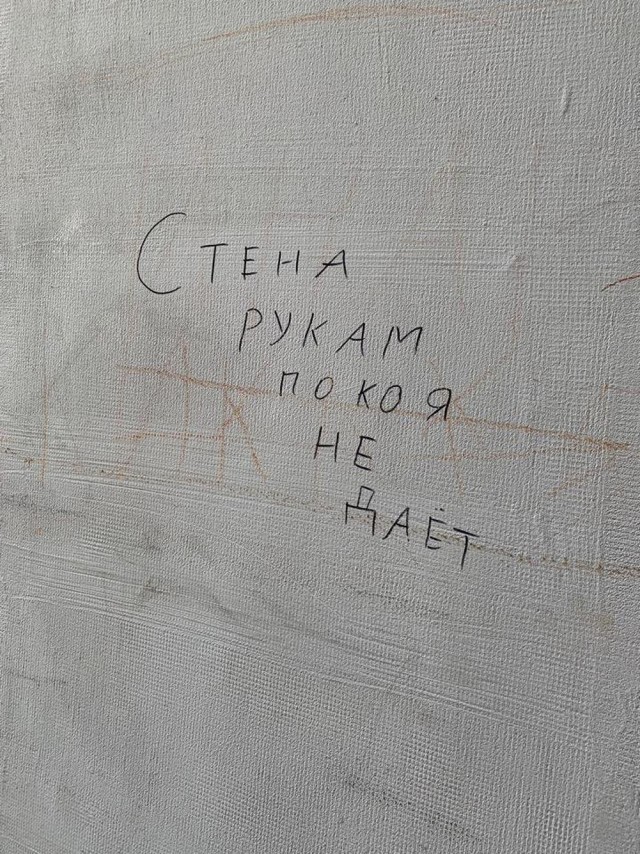 Стена
рукам
покоя
не
даёт